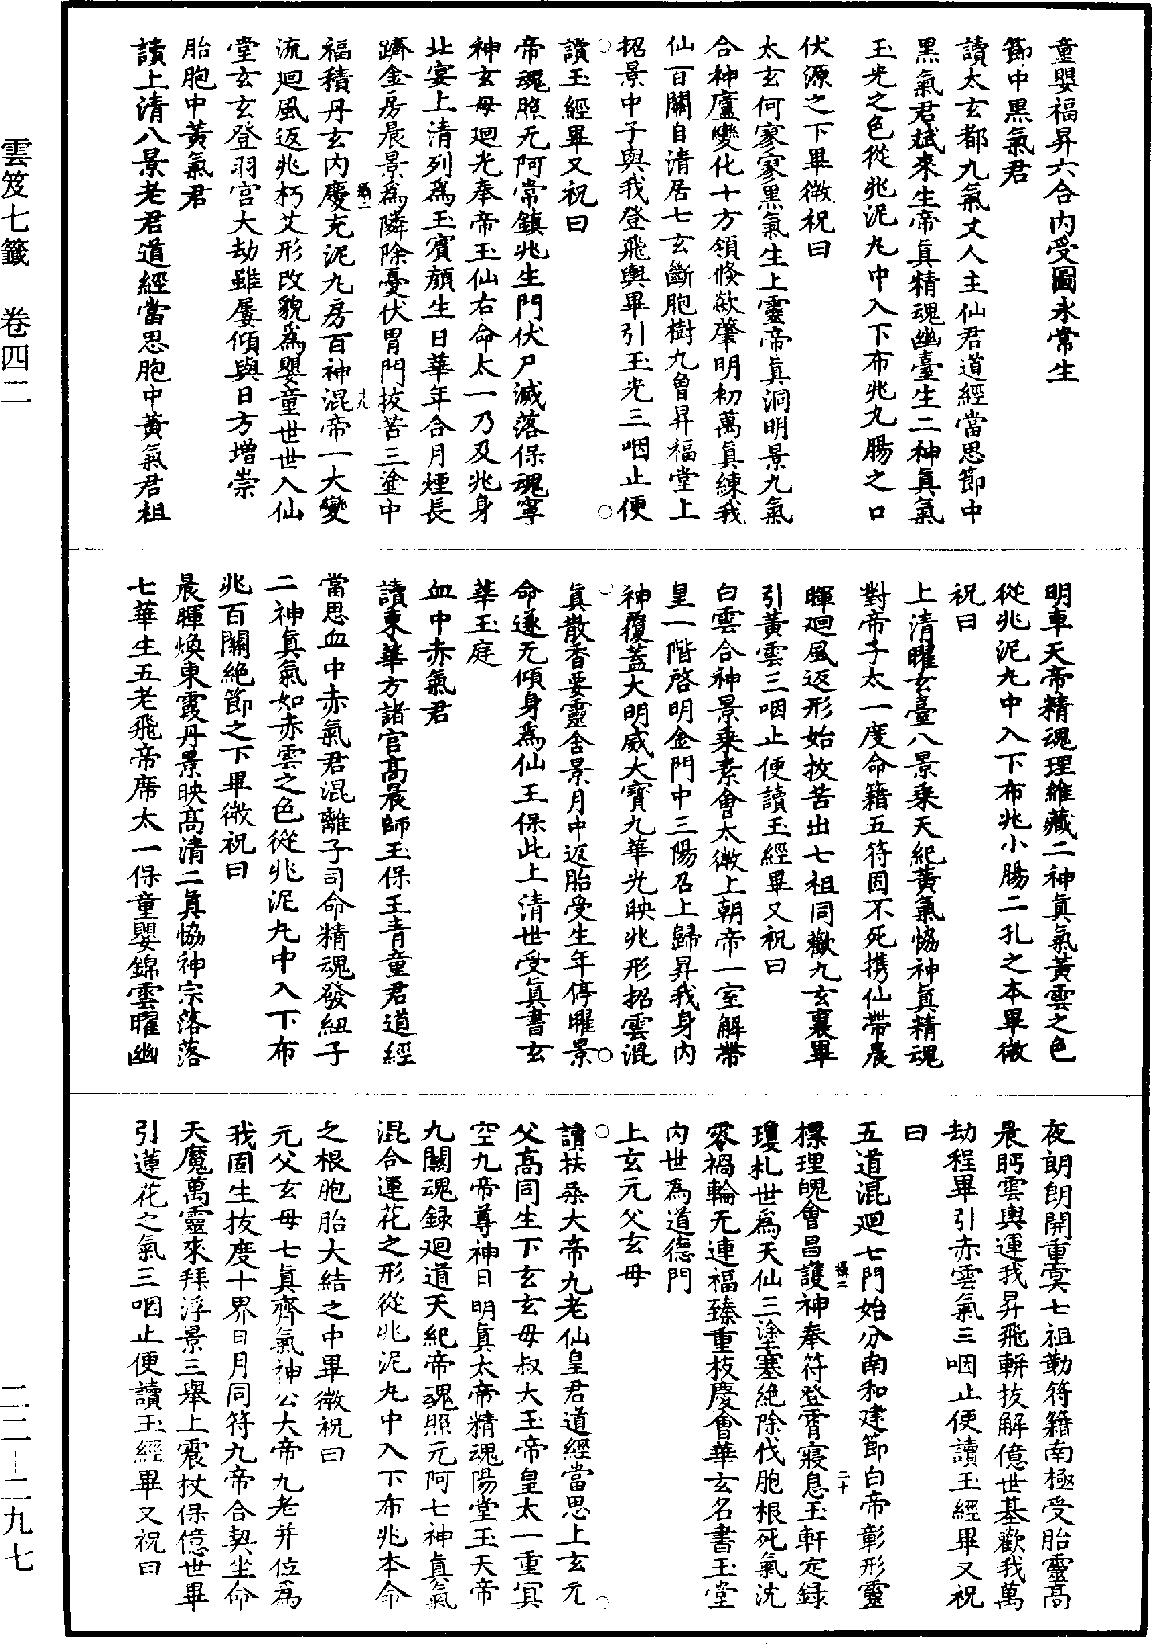 童嬰福昇六合內受圖永常生
節中黑氣君
讀太玄都九氣丈人主仙君道經當思節中
黑氣君斌來生帝真精魂幽臺生二神真氣
玉光之色從兆泥丸中入下布兆九腸之口
伏源之下畢微祝曰
太玄何寥寥黑氣生上靈帝真洞明景九氣
合神廬變化十方領倏欻肇明初萬真練我
仙百關自清居七玄斷胞樹九曾昇福堂上
招景中子與我登飛輿畢引玉光三咽止便
讀玉經畢又祝曰
帝魂照无阿常鎮兆生門伏尸滅落保魂寧
神玄母迴光奉帝玉仙右命太一乃及兆身
北宴上清列為玉賓顏生日華年合月煙長
躋金房晨景為隣除憂伏胃門拔苦三塗中
福積丹玄內慶充泥九房百神混帝一大變
流迴風返兆朽艾形改貌為嬰童世世入仙
堂玄玄登羽宮大劫雖屢傾與日方增崇
胎胞中黃氣君
讀上清八景老君道經當思胞中黃氣君祖
明車天帝精魂理維藏二神真氣黃雲之色
從兆泥丸中入下布兆小腸二孔之本畢微
祝曰
上清曜玄臺八景乘天紀黃氣恊神真精魂
對帝子太一度命籍五符固不死攜仙帶晨
暉迴風返形始拔苦出七祖同歡九玄裏畢
引黃雲三咽止便讀玉經畢又祝曰
白雲合神景乘素會太微上朝帝一室解帶
皇一階啓明金門中三陽召上歸昇我身內
神覆蓋大明威大寶九華光映兆形招雲混
真散香要靈舍景月中返胎受生年停曜景
命遂无傾身為仙王保此上清世受真書玄
華玉庭
血中赤氣君
讀東華方諸宮高晨師玉保王青童君道經
當思血中赤氣君混離子司命精魂發紐子
二神真氣如赤雲之色從兆泥丸中入下布
兆百關絕節之下畢微祝曰
晨暉煥東霞丹景映高清二真恊神宗落落
七華生五老飛帝席太一保童嬰錦雲曜幽
夜朗朗開重冥七祖勒符籍南極受胎靈高
晨眄雲輿運我昇飛軿拔解億世基歡我萬
劫程畢引赤雲氣三咽止便讀玉經畢又祝
曰
五道混迴七門始分南和建節白帝彰形靈
標理魄會昌護神奉符登霄寢息玉軒定錄
瓊札世為天仙三塗塞絕除伐胞根死氣沈
零禍輪无連福臻重枝慶會華玄名書玉堂
內世為道德門
上玄元父玄母
讀扶桑大帝九老仙皇君道經當思上玄元
父高同生下玄玄母叔大玉帝皇太一重冥
空九帝尊神日明真太帝精魂陽堂玉天帝
九關魂錄迴道天紀帝魂照元阿七神真氣
混合蓮花之形從兆泥丸中入下布兆本命
之根胞胎大結之中畢微祝曰
元父玄母七真齊氣神公大帝九老并位為
我固生拔度十界日月同符九帝合契坐命
天魔萬靈來拜浮景三舉上震杖保億世畢
引蓮花之氣三咽止便讀玉經畢又祝曰
雲笈七籤 卷四二
二二-二九七